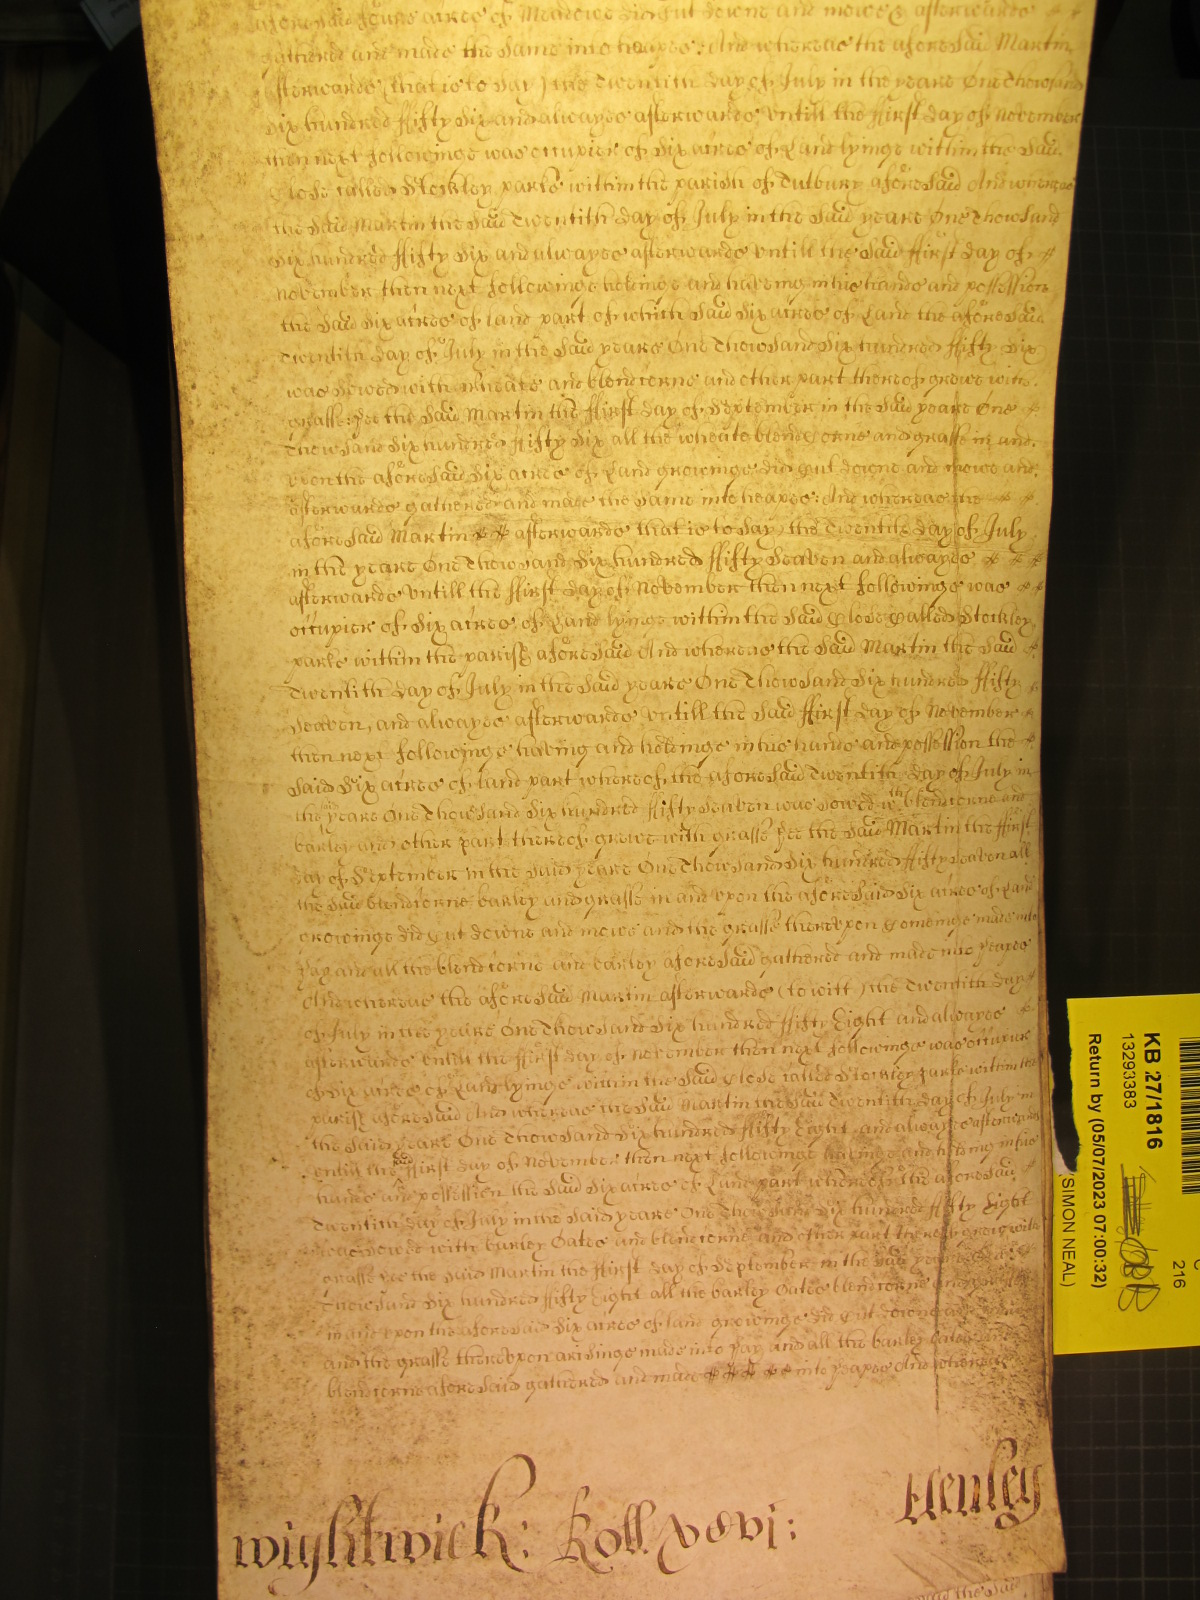 aforesaid foure acres of Meadowe did Cut downe and mowe & afterwards
gathered and made the same into heapes: And whereas the aforesaid Martin
afterwards (that is to say) the Twentith day of July in the yeare One Thowsand
Six hundred ffifty Six and alwayes afterwards untill the ffirst day of November
then next followinge was occupier of Six acres of Land lyinge within the said
Close called Stockley parke within the parish of Tutbury aforesaid And whereas
the said Martin the said Twentith day of July in the said yeare One Thowsand
Six hundred ffifty Six and alwayes afterwards untill the said ffirst day of
November then next followinge holdinge and haveing in his hands and possession
the said Six acres of land part of which said Six acres of Land the aforesaid
Twentith day of July in the said yeare One Thowsand Six hundred ffifty Six
was sowed with wheate and blendcorne and other part thereof growe with
grasse: Hee the said Martin the ffirst day of September in the said yeare One
Thowsand Six hundred ffifty Six all the wheate blendcorne and grasse in and
upon the aforesaid Six acres of Land growinge did Cut downe and mowe and
afterwards gathered and made the same into heapes: And whereas the
aforesaid Martin afterwards that is to say the Twentith day of July
in the yeare One Thowsand Six hundred ffifty Seaven and alwayes
afterwards untill the ffirst day of November then next followinge was
occupier of Six acres of Land lyinge within the said Close Called Stockley
parke within the parish aforesaid And whereas the said Martin the said
Twentith day of July in the said yeare One Thowsand Six hundred ffifty
Seaven, and alwayes afterwards untill the said ffirst day of November
then next followinge having and holdinge in his hands and possession the
said Six acres of land part whereof the aforesaid Twentith day of July in
the said yeare One Thowsand Six hundred ffifty Seaven was sowed wth blendcorne and
barley and other part thereof growe with grasse Hee the said Martin the ffirst
day of September in the said yeare One Thowsand Six hundred ffifty Seaven all
the said blendcorne barley and grasse in and upon the aforesaid Six acres of Land
growinge did Cut downe and mowe and the grasse thereupon Comeinge made into
Hay and all the blendcorne and barley aforesaid gathered and made into heapes
And whereas the aforesaid Martin afterwards (to witt) the Twentith day
of July in the yeare One Thowsand Six hundred ffifty Eight and alwayes
afterwards untill the ffirst day of November then next followinge was occupier
of Six acres of Land lyinge within the said Close called Stockley parke within the
parish aforesaid And whereas the said Martin the said Twentith day of July in
the said yeare One Thowsand Six hundred ffifty Eight and alwayes afterwards
untill the said ffirst day of November then next followinge haveinge and holding in his
hands and possession the said Six acres of Land part whereof the aforesaid
Twentith day of July in the said yeare One Thowsand Six hundred ffifty Eight
was sowed with barley Oates and blendcorne and other part thereof growe with
grasse Hee the said Martin the ffirst day of September in the said yeare
Thowsand Six hundred ffifty Eight all the barley Oates blendcorne and
in and upon the aforesaid Six acres of land growinge did Cut downe and
and the grasse thereupon ariseinge made into Hay and all the barley Oates and
blendcorne aforesaid gathered and made into heapes And whereas
Wightwick: Roll xcvi:
Henley
KB 27/1816
13293383
Return by (05/07/2023 07:00:32)
(SIMON NEAL)
216